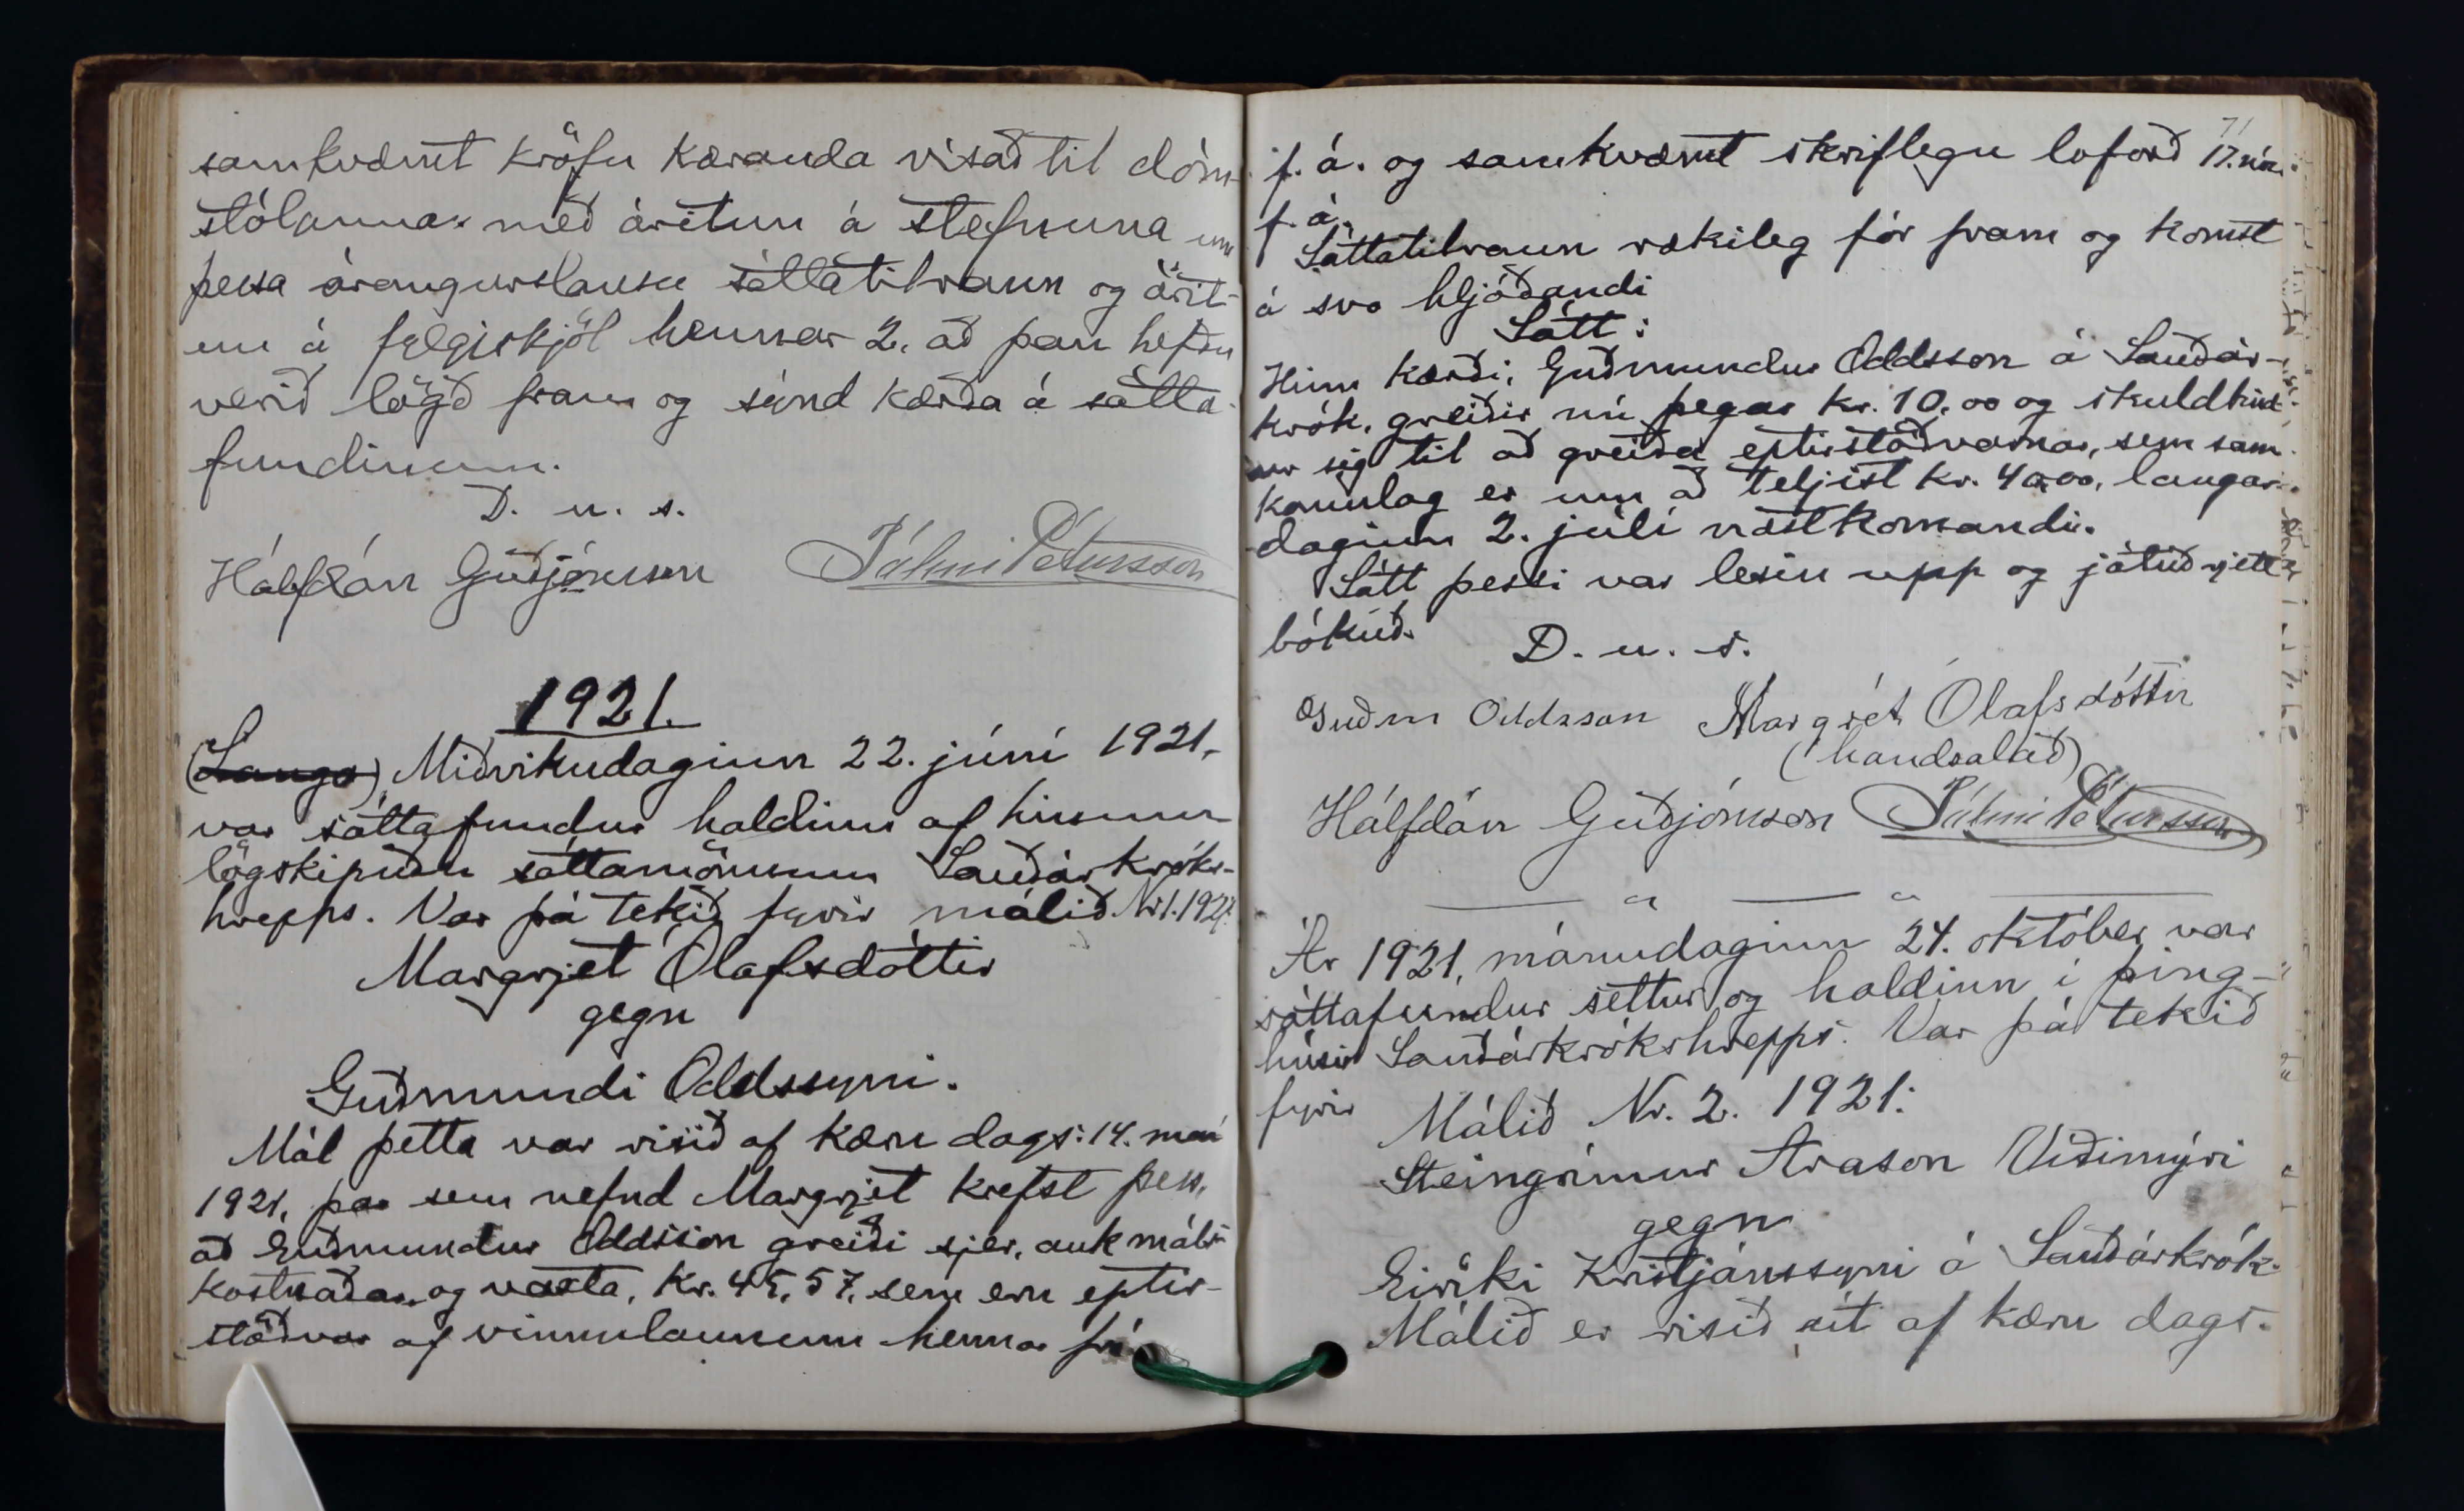 samkvæmt kröfu kæranda vísað til dóm-
stólanna með áritun á stefnuna um
þessa árangurslausu sáttatilraun og árit-
un á fylgiskjöl hennar 2, að þau hefðu
verið lögð fram og sýnd kærða á sátta-
fundinum.
D. u. s.
Hálfdán Guðjónsson Pálmi Pétursson
1921.
(Langa) Miðvikudaginn 22. júní 1921,
var sáttafundur haldinn af hinum
lögskipuðu sáttamönnum Sauðárkróks-
hrepps. Var þá tekið fyrir málið Nr 1. 1921.
Margrjet Ólafsdóttir
gegn
Guðmundi Oddssyni.
Mál þetta var risið af kæru dags: 14. maí
1921, þar sem nefnd Margrjet krefst þess,
að Guðmundur Oddsson greiði sjer, auk máls-
kostnaðar og vaxta, Kr. 45,57, sem eru eptir-
stöðvar af vinnulaunum hennar frá
71
f. á. og samkvæmt skriflegu loforð 17. nóv.
f. á.
Sáttatilraun rækileg fór fram og komst
á svo hljóðandi
Sátt:
Hinn kærði, Guðmundur Oddsson á Sauðár-
krók, greiðir nú þegar kr. 10,00 og skuldbind-
ur sig til að greiða eptirstöðvarnar, sem sam-
komulag er um að teljist kr. 40,00, laugar-
daginn 2. júlí næstkomandi.
Sátt þessi var lesin upp og játuð rjett
bókuð.
D. u. s.
Guðm Oddsson Margrét Ólafsdóttir
(handsalað)
Hálfdán Guðjónsson Pálmi Pétursson
Ár 1921, mánudaginn 24. október var
sáttafundur settur og haldinn í þing-
húsi Sauðárkrókshrepps. Var þá tekið
fyrir
Málið Nr. 2. 1921:
Steingrímur Arason Víðimýri
gegn
Eiríki Kristjánssyni á Sauðárkrók.
Málið er risið út af kæru dags.